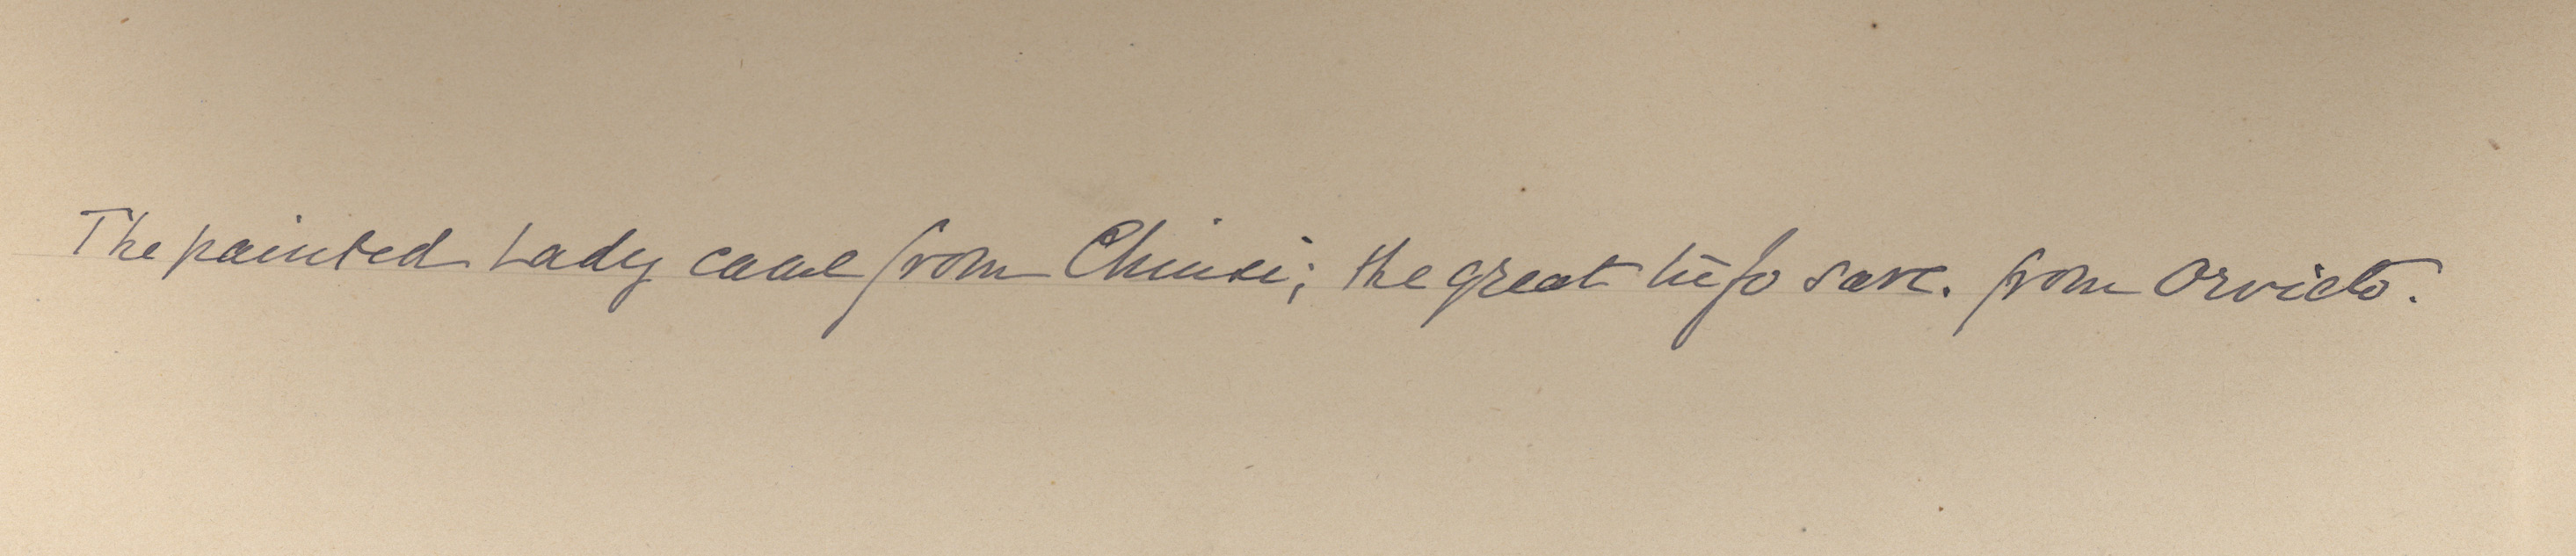 The painted Lady came from Chiusi; the great tufo sarc. from Orvieto.